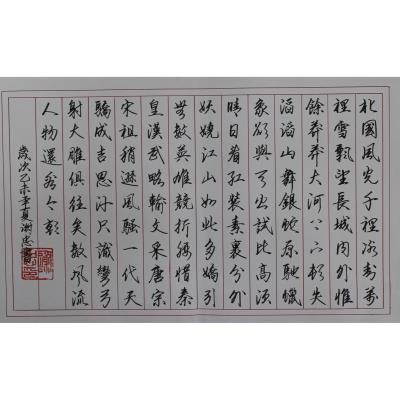 北國風光千裡冰封萬
裡雪飄望長城內外惟
餘莽莽大河上下頓失
滔滔山舞銀蛇原馳蠟
象欲與天公試比高須
晴日看紅裝素裹分外
妖嬈江山如此多嬌引
無數英雄競折腰惜秦
皇漢武略輸文采唐宗
宋祖稍遜風騷一代天
驕成吉思汗只識彎弓
射大雕俱往矣數風流
人物還看今朝
歲次乙未季夏謝忠